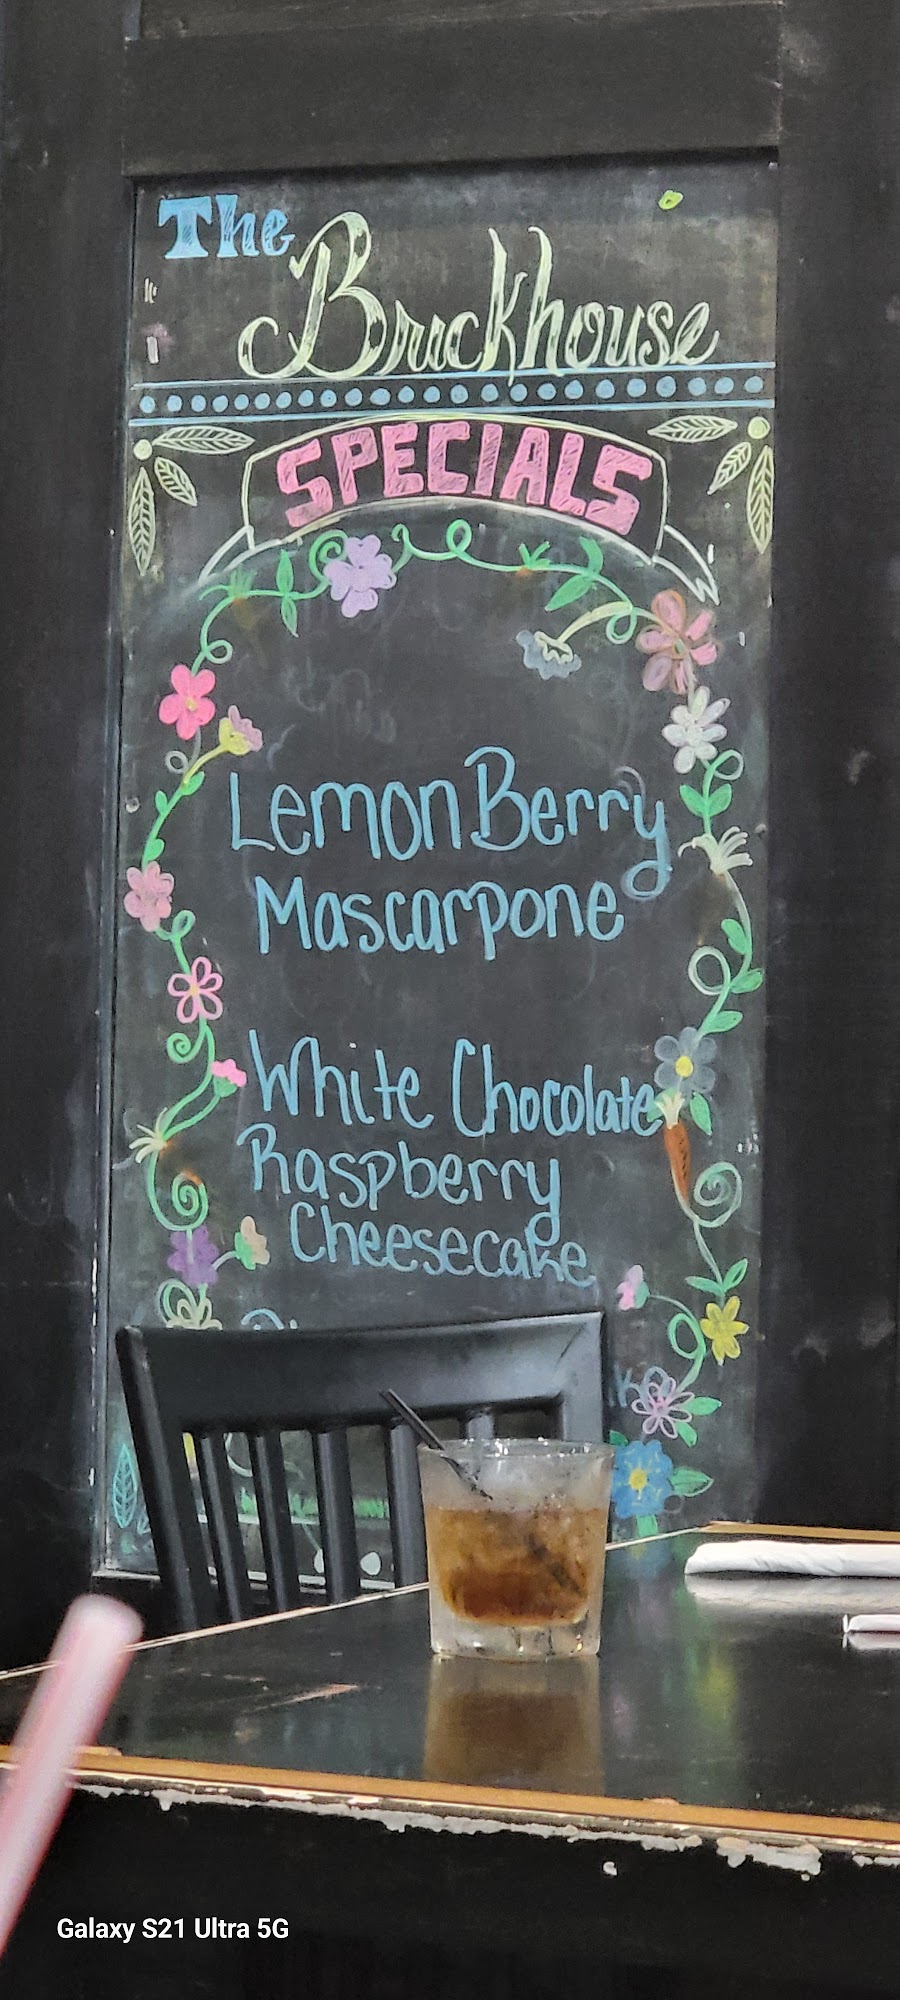 The
Brickhouse
SPECIALS
Lemon Berry
Mascarpone
White Chocolate
Raspberry
Cheesecake
Galaxy S21 Ultra 5G